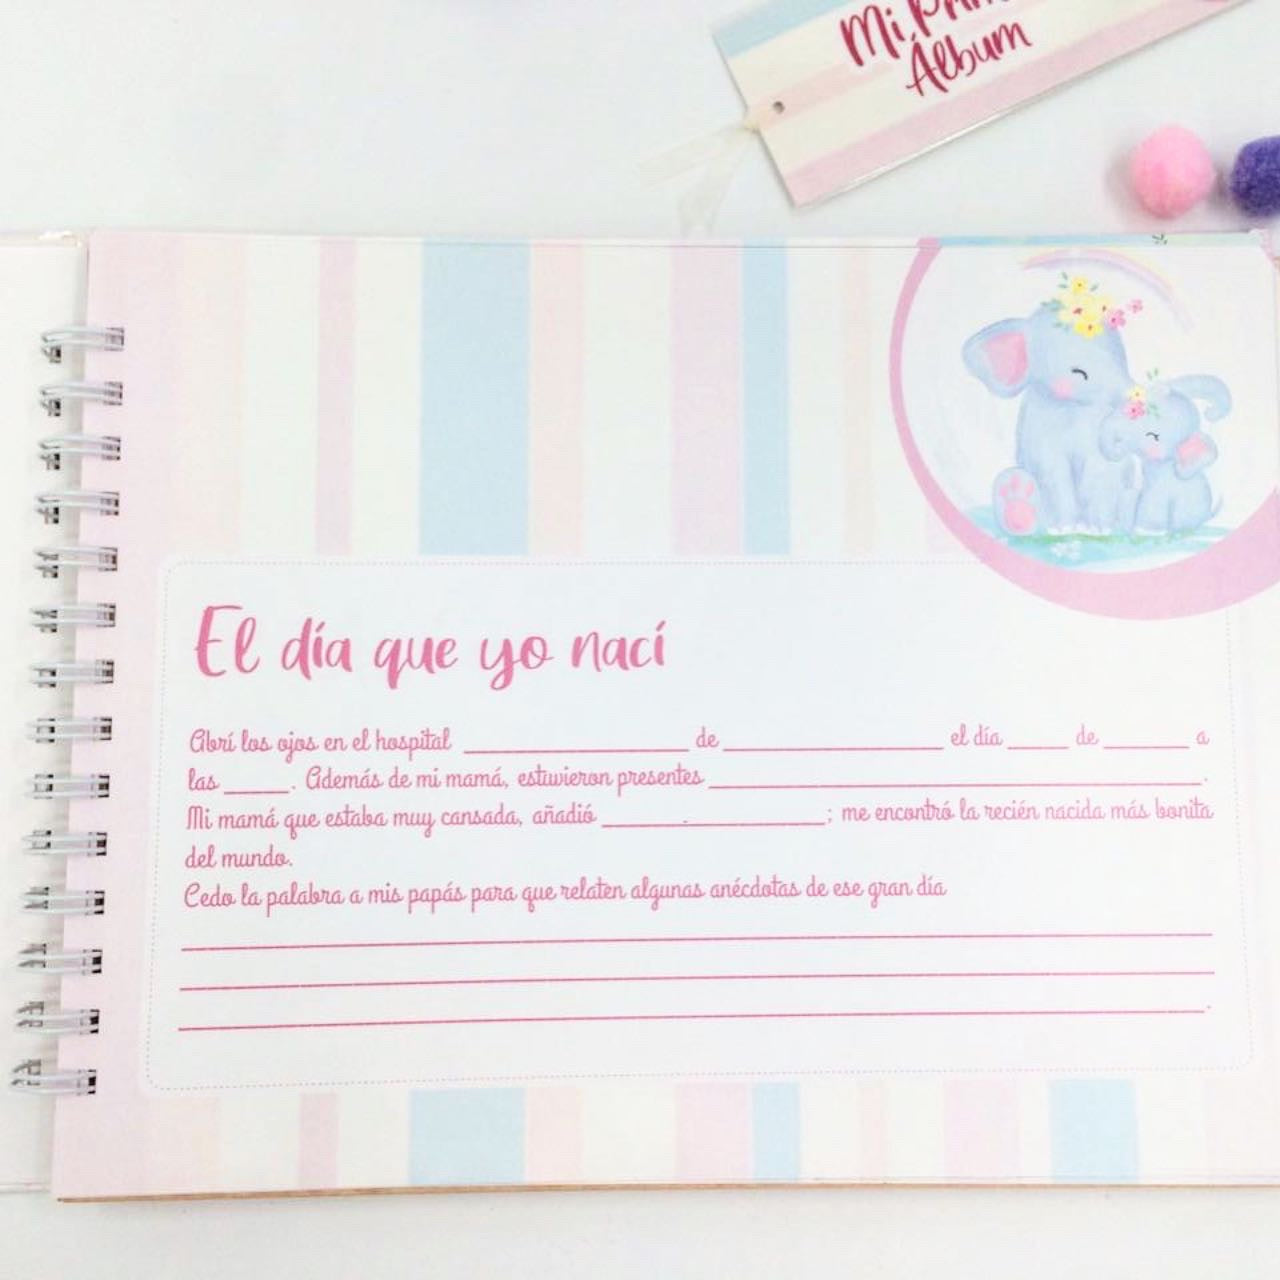 Mi
Álbum
El día que yo nací
Abrí los ojos en el hospital ____________ de ____________ el día ____ de _____ a
las ____. Además de mi mamá, estuvieron presentes __________________________.
Mi mamá que estaba muy cansada, añadió ____________; me encontró la recién nacida más bonita
del mundo.
Cedo la palabra a mis papás para que relaten algunas anécdotas de ese gran día